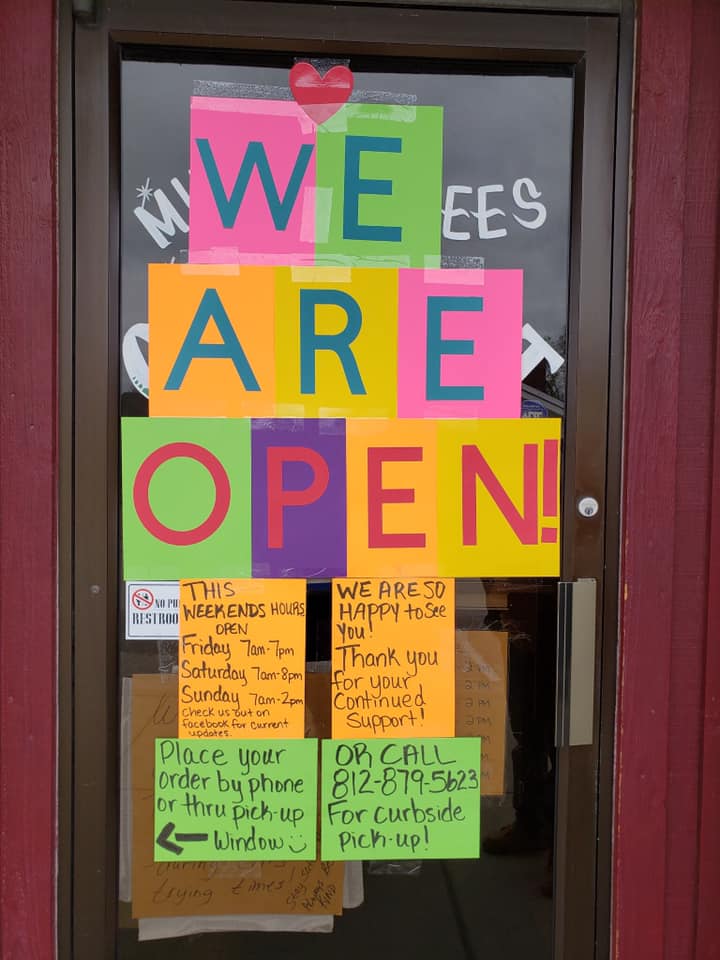 WE
EES
ARE
OPEN!
NO PU
RESTROO
THIS
WEEKENDS HOURS
OPEN
Friday 7am-7pm
Saturday 7am-8pm
Sunday 7am-2pm
check us out on
facebook for current
updates.
WE ARE SO
HAPPY to See
You!
Thank you
for your
Continued
Support!
2 PM
2 PM
2 PM
2 PM
Place your
order by phone
or thru pick-up
Window
OR CALL
812-879-5623
For curbside
Pick-up!
trying times!
Stay Safe
Always Be
KIND